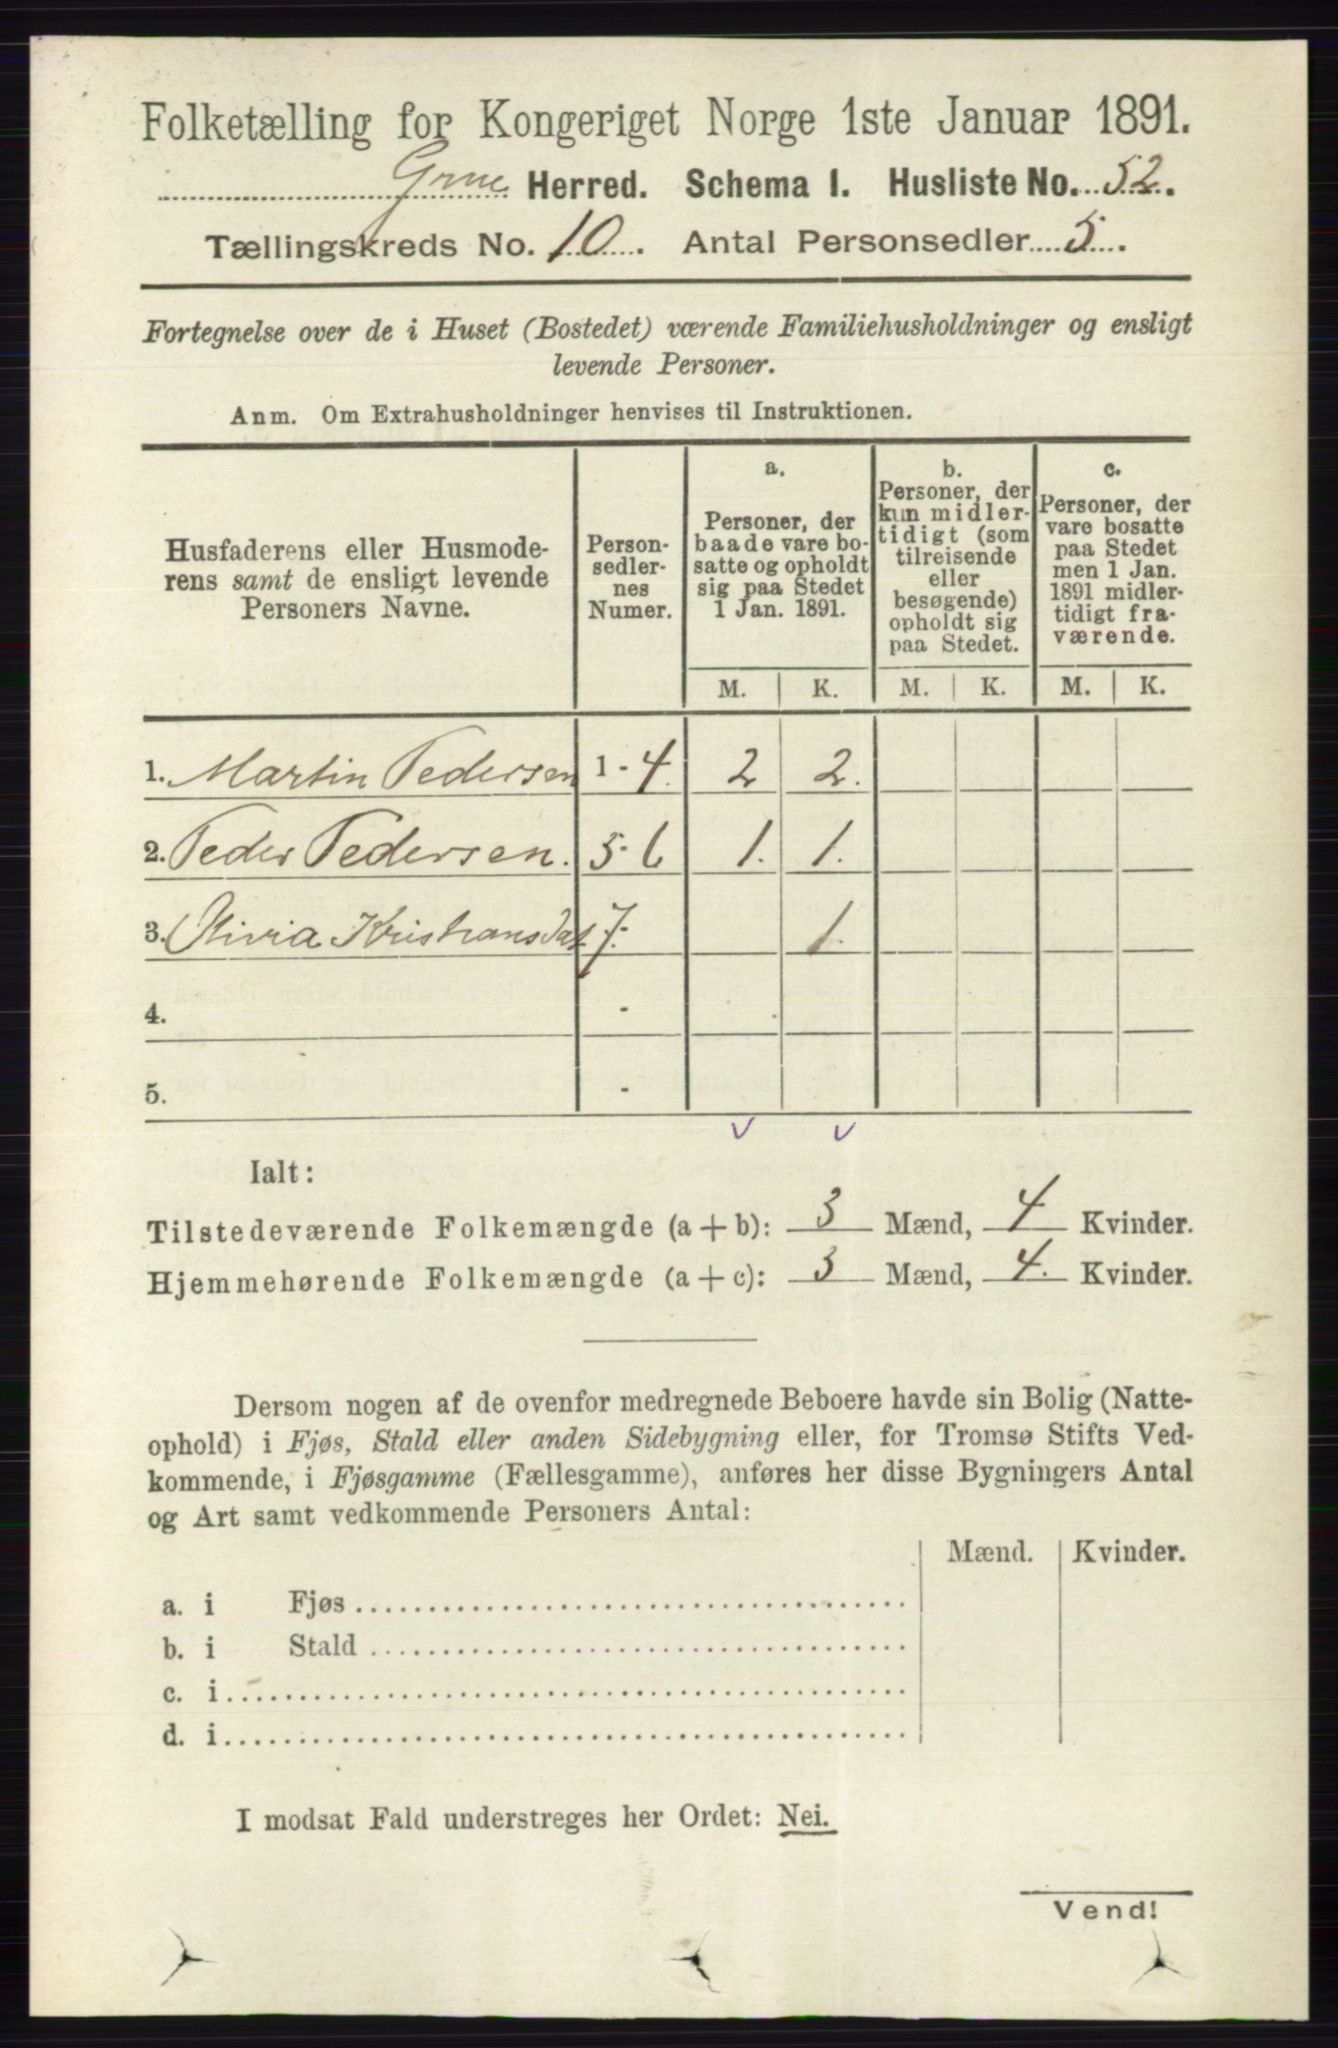 Folketælling for Kongeriget Norge 1ste Januar 1891.
Grue Herred. Schema I. Husliste No. 52.
Tællingskreds No. 10. Antal Personsedler 5.
Fortegnelse over de i Huset (Bostedet) værende Familiehusholdninger og ensligt
levende Personer.
Anm. Om Extrahusholdninger henvises til Instruktionen.
Husfaderens eller Husmode-
rens samt de ensligt levende
Personers Navne.
Person-
sedler-
nes
Numer.
a.
Personer, der
baade vare bo-
satte og opholdt
sig paa Stedet
1 Jan. 1891.
b.
Personer, der
kun midler-
tidigt (som
tilreisende
eller
besøgende)
opholdt sig
paa Stedet.
c.
Personer, der
vare bosatte
paa Stedet
men 1 Jan.
1891 midler-
tidigt fra-
værende.
M. K. M. K. M. K.
1. Martin Pedersen 1 - 4. 2 2.
2. Peder Pedersen. 5 - 6 1. 1.
3. Olivia Kristiansdat 7. 1.
4. -
5. -
Ialt:
Tilstedeværende Folkemængde (a + b): 3 Mænd, 4 Kvinder.
Hjemmehørende Folkemængde (a + c): 3 Mænd, 4. Kvinder.
Dersom nogen af de ovenfor medregnede Beboere havde sin Bolig (Natte-
ophold) i Fjøs, Stald eller anden Sidebygning eller, for Tromsø Stifts Ved-
kommende, i Fjøsgamme (Fællesgamme), anføres her disse Bygningers Antal
og Art samt vedkommende Personers Antal:
Mænd. Kvinder.
a. i Fjøs
b. i Stald
c. i
d. i
I modsat Fald understreges her Ordet: Nei.
Vend!